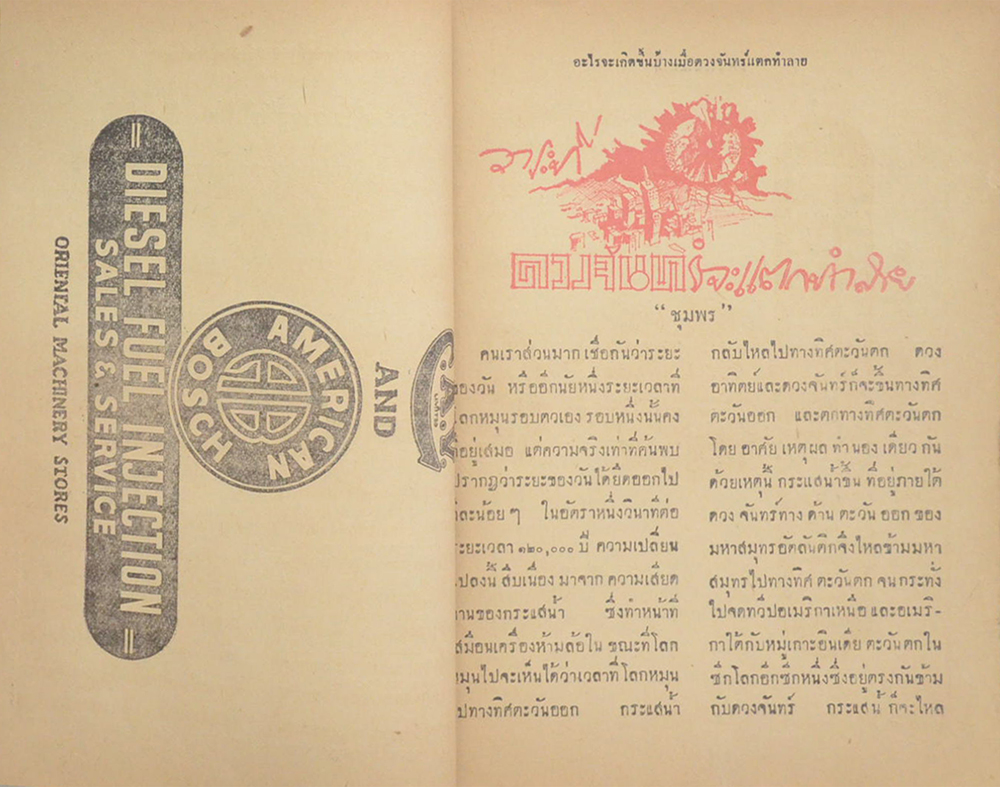 DIESEL FUEL INJECTION
SALES & SERVICE
ORIENTAL MACHINERY STORES
AMERICAN
BOSCH
AND
อะไรจะเกิดขึ้นบ้างเมื่อดวงจันทร์แตกทำลาย
ดวงจันทร์จะแตกทำลาย
“ชุมพร”
คนเราส่วนมาก เชื่อกันว่าระยะ
ของวัน หรืออีกนัยหนึ่งระยะเวลาที่
โลกหมุนรอบตัวเอง รอบหนึ่งนั้นคง
ที่อยู่เสมอ แต่ความจริงเท่าที่ค้นพบ
ปรากฏว่าระยะของวันได้ยืดออกไป
ทีละน้อยๆ ในอัตราหนึ่งวินาทีต่อ
ระยะเวลา ๑๒๐,๐๐๐ ปี ความเปลี่ยน
แปลงนี้ สืบเนื่อง มาจาก ความเสียด
ทานของกระแสน้ำ ซึ่งทำหน้าที่
เสมือนเครื่องห้ามล้อใน ขณะที่โลก
หมุนไปจะเห็นได้ว่าเวลาที่โลกหมุน
ไปทางทิศตะวันออก กระแสน้ำ
กลับไหลไปทางทิศตะวันตก ดวง
อาทิตย์และดวงจันทร์ก็จะขึ้นทางทิศ
ตะวันออก และตกทางทิศตะวันตก
โดย อาศัย เหตุผล ทำนอง เดียว กัน
ด้วยเหตุนี้ กระแสน้ำขึ้น ที่อยู่ภายใต้
ดวง จันทร์ทาง ด้าน ตะวัน ออก ของ
มหาสมุทรอัตลันติกจึงไหลข้ามมหา
สมุทรไปทางทิศ ตะวันตก จนกระทั่ง
ไปจดทวีปอเมริกาเหนือ และอเมริ-
กาใต้กับหมู่เกาะอินเดีย ตะวันตกใน
ซีกโลกอีกซีกหนึ่งซึ่งอยู่ตรงกันข้าม
กับดวงจันทร์ กระแสน้ำ ก็จะไหล